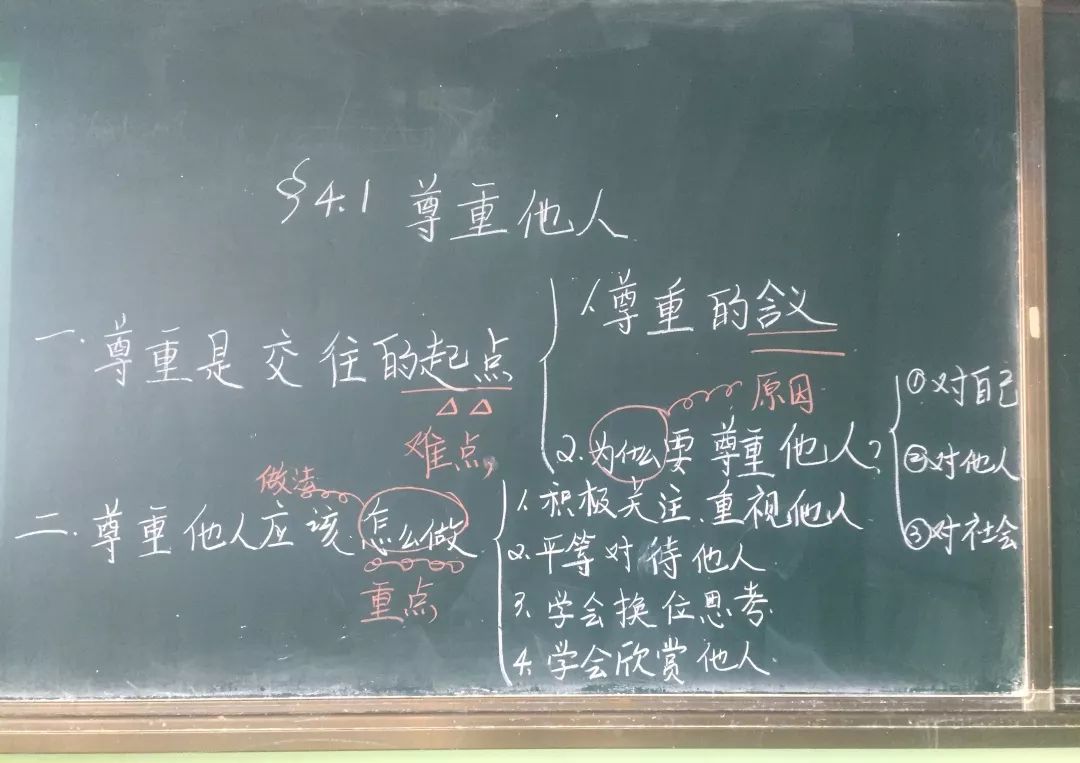 §4.1 尊重他人
一.尊重是交往的起点
难点
1.尊重的含义
2.为什么要尊重他人?
原因
①对自己
②对他人
③对社会
二.尊重他人应该怎么做
做法
重点
1.积极关注、重视他人
2.平等对待他人
3.学会换位思考
4.学会欣赏他人